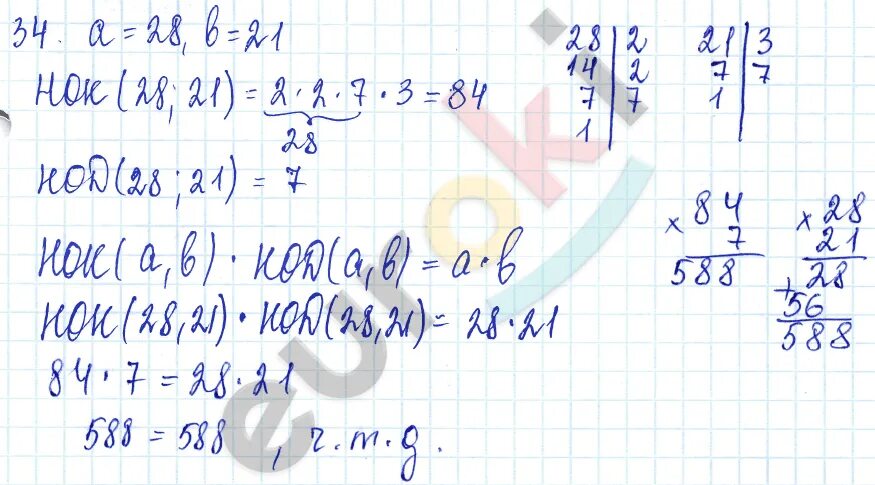 34. a = 28, b = 21
НОК(28; 21) = 2 · 2 · 7 · 3 = 84
28
НОD(28; 21) = 7
НОК(a, b) · НОD(a, b) = a · b
НОК(28, 21) · НОD(28, 21) = 28 · 21
84 · 7 = 28 · 21
588 = 588, ч.т.д.
28 | 2
14 | 2
7 | 7
1 |
21 | 3
7 | 7
1 |
× 84
7
588
× 28
21
+ 28
56
588
euroki